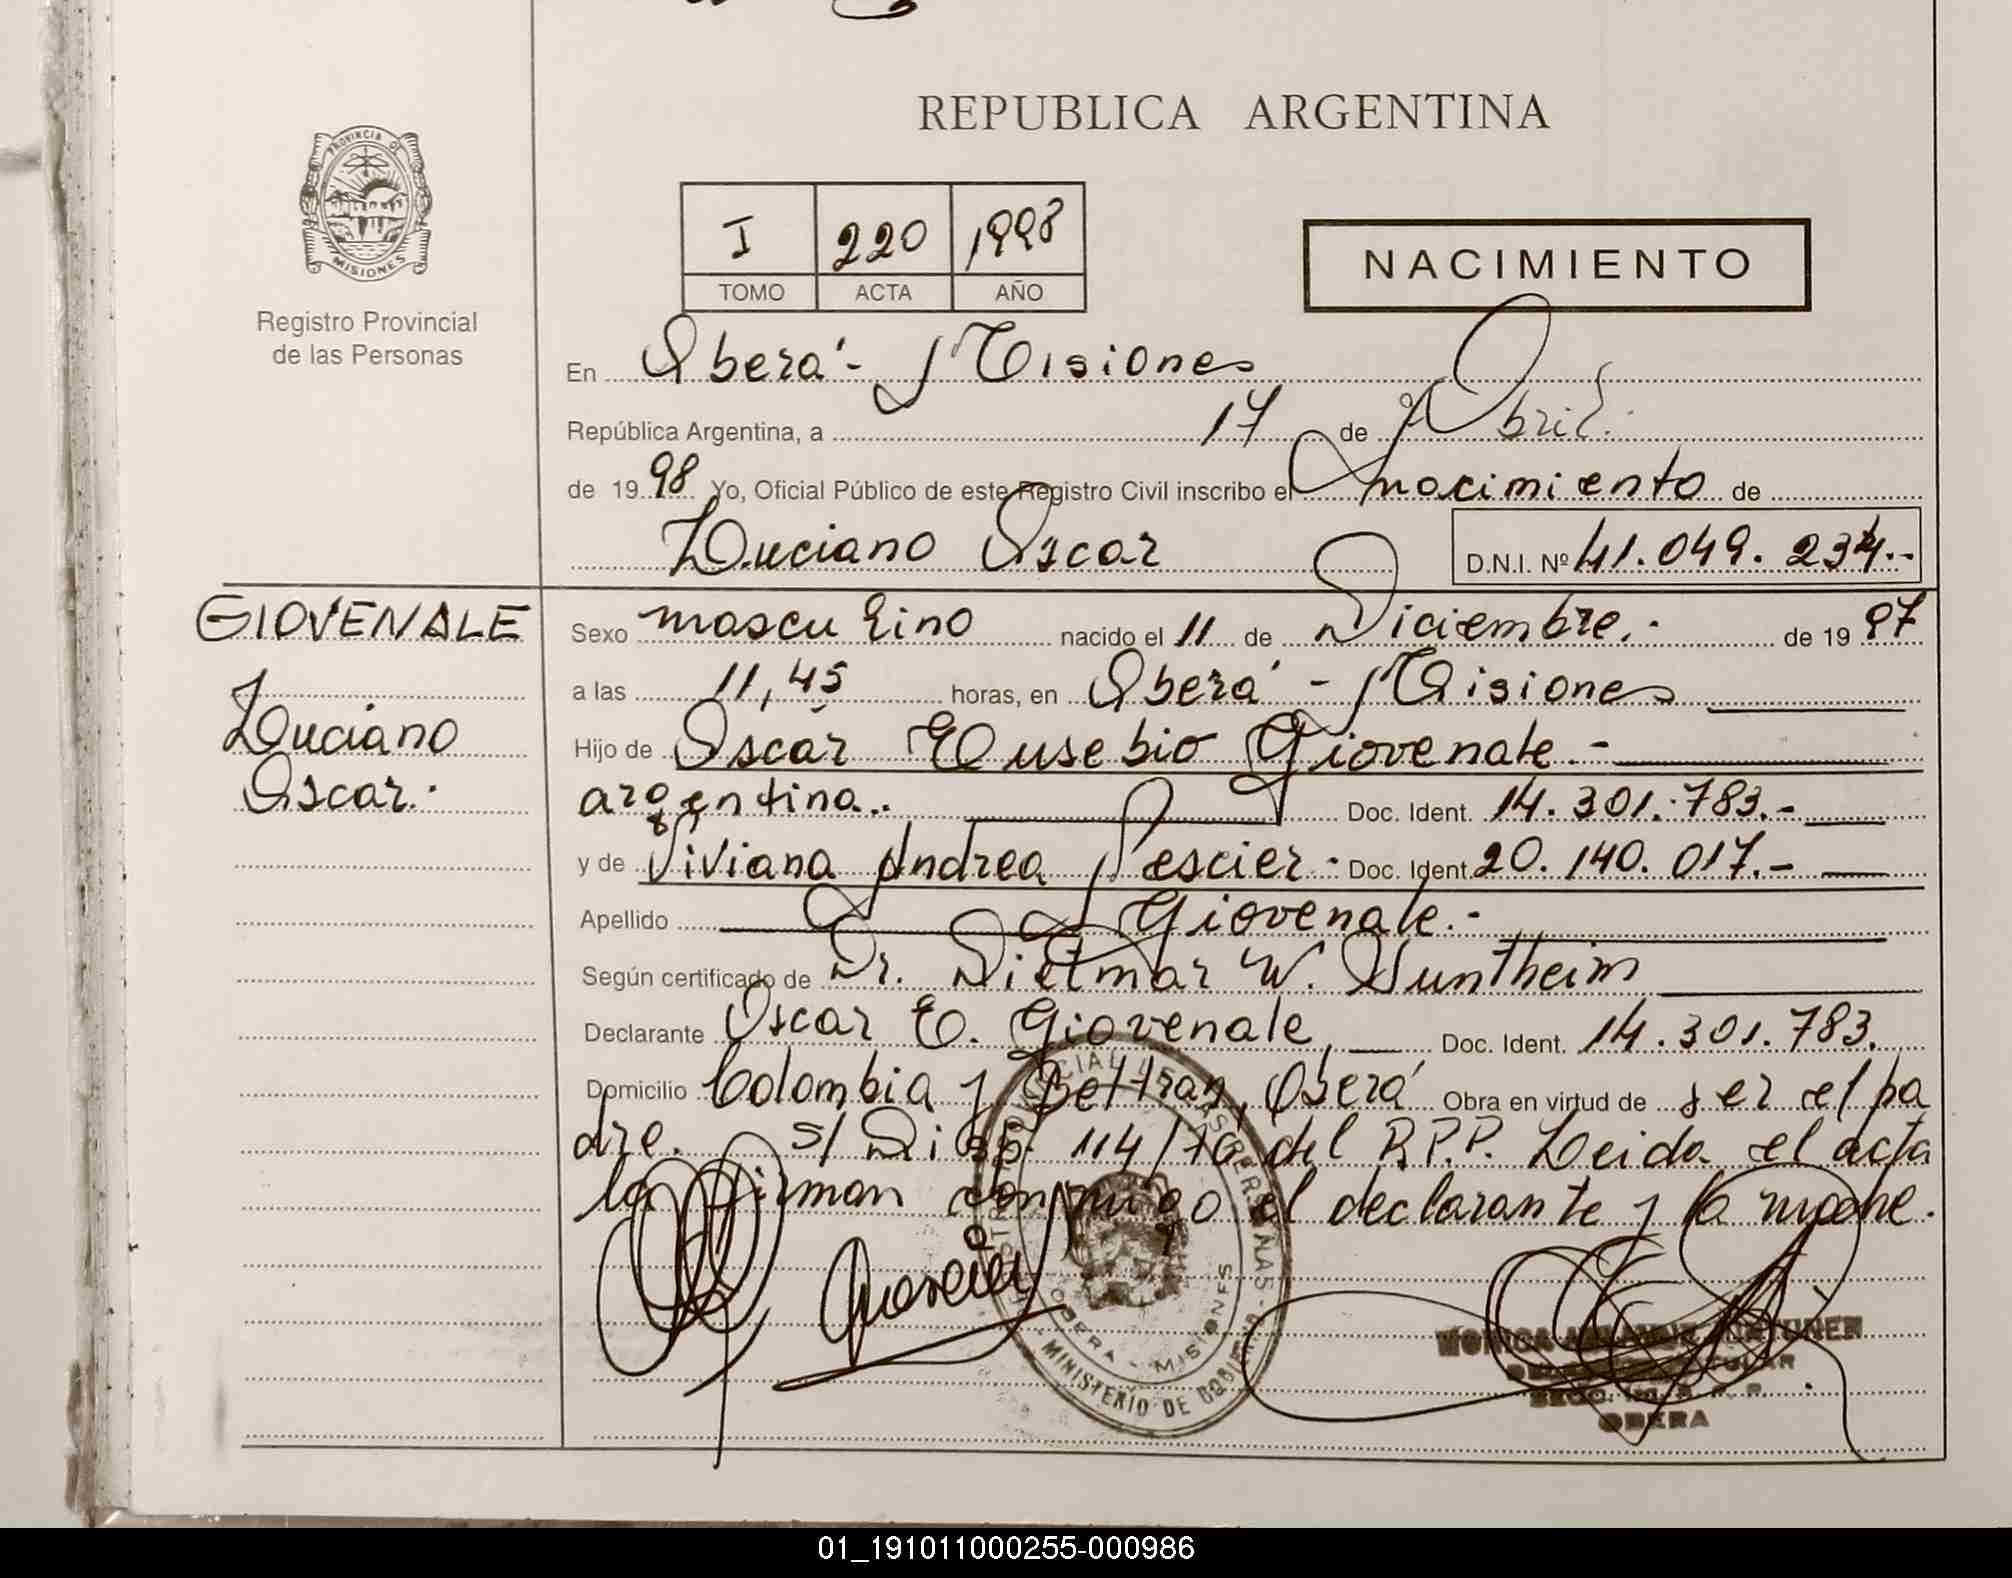 REPUBLICA ARGENTINA
PROVINCIA DE
MISIONES
Registro Provincial
de las Personas
I 220 1998
TOMO ACTA AÑO
NACIMIENTO
En Oberá - Misiones
República Argentina, a 17 de Abril
de 1998 Yo, Oficial Público de este Registro Civil inscribo el nacimiento de
Luciano Oscar D.N.I. Nº 41.049.234.-
GIOVENALE
Luciano
Oscar.
Sexo masculino nacido el 11 de Diciembre.- de 1997
a las 11,45 horas, en Oberá - Misiones
Hijo de Oscar Eusebio Giovenale.-
argentina.. Doc. Ident. 14.301.783.-
y de Viviana Andrea Pescier.- Doc. Ident. 20.140.017.-
Apellido Giovenale.-
Según certificado de Dr. Dietmar W. Suntheim
Declarante Oscar E. Giovenale, Doc. Ident. 14.301.783.
Domicilio Colombia y Beltran, Oberá Obra en virtud de ser el pa
dre. s/ Disp. 114/76 del R.P.P. Leida el acta
la firman conmigo el declarante y la madre.
OBERA - MISIONES
MINISTERIO DE GOBIERNO
MONICA
OBERA
01_191011000255-000986